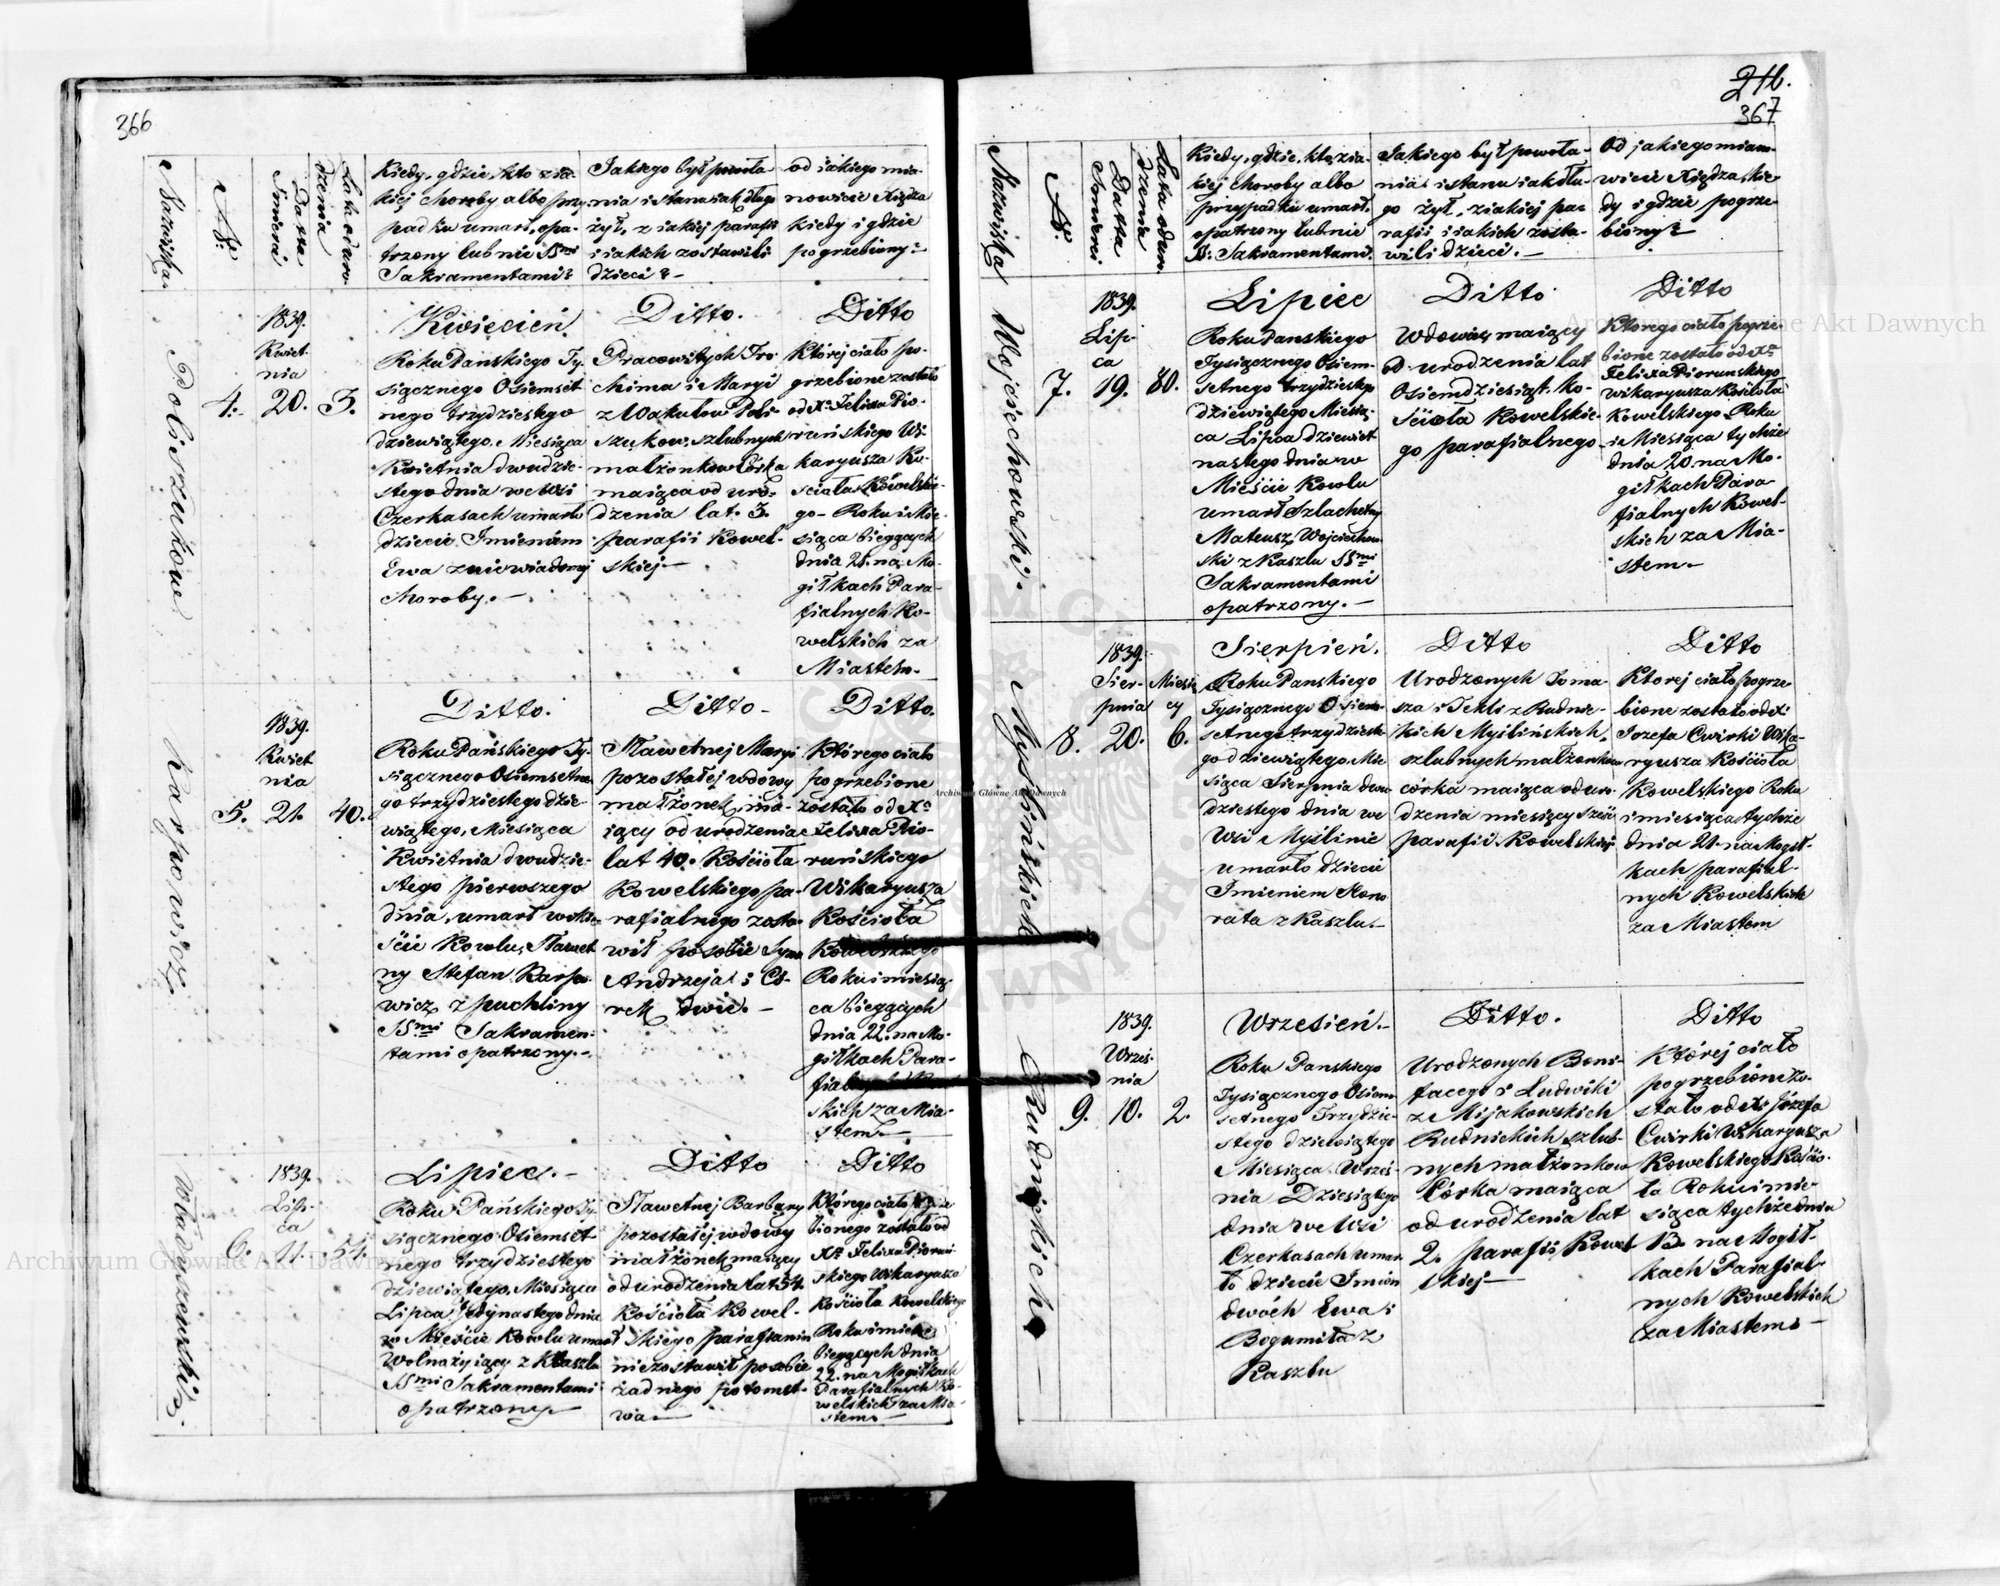 366
Nazwiska
№
Datta Śmierci
Lata od urodzenia
Kiedy, gdzie, kto z ia-
kiej choroby albo przy-
padku umarł, opa-
trzony lub nie SSmi
Sakramentami?
Jakiego był powoła
nia i stanu iak długo
żył, z iakiej parafii
i iakich zostawili
dzieci? –
od iakiego mia-
nowicie Xiędza
kiedy i gdzie
pogrzebiony?
Poliszukowe
4.
1839.
Kwiet-
nia
20.
3.
Kwiecień.
Roku Pańskiego Ty-
siącznego Osiemset-
nego trzydziestego
dziewiątego, Miesiąca
Kwietnia dwudzie-
stego dnia we Wsi
Czerkasach umarło
dziecie Imieniem
Ewa z niewiadomej
choroby. –
Ditto.
Pracowitych Tro
chima i Maryi
z Wakułow Poli-
szukow, szlubnych
małżonkow Córka
maiąca od uro-
dzenia lat. 3.
parafii Kowel-
skiej. –
Ditto
Której ciało po-
grzebione zostało
od X. Felixa Pio-
ruńskiego Wi-
karyusza Ko-
ścioła Kowelskie-
go – Roku i Mie-
siąca bieżących
dnia 21. na Mo-
giłkach Para-
fialnych Ko-
welskich za
Miastem. –
Karpowicz
5.
1839.
Kwiet
nia
21.
40.
Ditto.
Roku Pańskiego Ty-
siącznego Osiemsetne
go trzydziestego dzie-
wiątego, Miesiąca
Kwietnia dwudzie-
stego pierwszego
dnia, umarł w Mie-
ście Kowlu, Sławet
ny Stefan Karpo-
wicz z puchliny
SSmi Sakramen-
tami opatrzony. –
Ditto –
Sławetnej Maryi
pozostałej wdowy
małżonek, ma-
iący od urodzenia
lat 40. Kościoła
Kowelskiego pa-
rafialnego zosta-
wił po sobie Syna
Andrzeja i Có-
rek dwie. –
Ditto.
Którego ciało
pogrzebione
zostało od Xa
Felixa Pio-
ruńskiego
Wikaryusza
Kościoła
Kowelskiego
Roku i miesią-
ca bieżących
dnia 22. na Mo-
giłkach Para-
fialnych Kowel
skich za Mia-
stem. –
Władziszewski.
6.
1839.
Lip-
ca
11.
54.
Lipiec. –
Roku Pańskiego Ty-
siącznego Osiemset-
nego trzydziestego
dziewiątego, Miesiąca
Lipca Jedynastego dnia
w Mieście Kowlu umarł
Wolnożyiący z Kaszlu
SSmi Sakramentami
opatrzony. –
Ditto
Sławetnej Barbary
pozostałej wdowy
małżonek, maiący
od urodzenia lat 54
Kościoła Kowel-
skiego parafianin
niezostawił po sobie
żadnego potomst-
wa –
Ditto
Którego ciało pogrze
bionego zostało od
Xa Felixa Pioruń-
skiego Wikaryusza
Kościoła Kowelskiego
Roku i mies
bieżących dnia
22. na Mogiłkach
Parafialnych Ko-
welskich za Mia-
stem. –
216.
367
Nazwiska
№
Datta Śmierci
Lata od uro-
dzenia
Kiedy, gdzie, kto, z ia-
kiej choroby albo
przypadku umarł,
opatrzony lub nie
SS. Sakramentami.
Jakiego był powoła-
nia i stanu iak dłu-
go żył, z iakiej pa-
rafii i iakich zosta-
wili dzieci. –
Od jakiego miano-
wicie Xiędza, kie-
dy i gdzie pogrze-
biony?
Wojciechowski.
7.
1839.
Lip-
ca
19.
80.
Lipiec
Roku Pańskiego
Tysiącznego Osiem-
setnego trzydziestego
dziewiątego Miesią-
ca Lipca dziewiet
nastego dnia w
Mieście Kowlu
umarł Szlachetny
Mateusz Wojciechow-
ski z Kaszlu SSmi
Sakramentami
opatrzony. –
Ditto
Wdowiec, maiący
od urodzenia lat
Osiemdziesiąt. Ko-
ścioła Kowelskie-
go parafialnego –
Ditto
Ktorego ciało pogrze-
bione zostało od Xa
Felixa Piorunskiego
wikaryusza Kościoła
Kowelskiego. Roku
i Miesiąca tychże
dnia 20 na Mo-
giłkach Para-
fialnych Kowel-
skich za Mia-
stem –
Myślińskich
8.
1839.
Sier-
pnia
20.
Miesię
cy
6.
Sierpień.
Roku Panskiego
Tysiącznego Osiem-
setnego trzydzieste-
go dziewiątego, Mie
siąca Sierpnia dwu
dziestego dnia we
Wsi Myślinie
umarło dziecie
Imieniem Hono
rata z Kaszlu. –
Ditto
Urodzonych Toma-
sza i Tekli z Rudnic-
kich Myślińskich,
szlubnych małżonkow
córka maiąca od uro-
dzenia miesięcy sześć
parafii Kowelskiej
Ditto
Ktorej ciało pogrze-
bione zostało od X.
Jozefa Cwirki Wika-
ryusza Kościoła
Kowelskiego Roku
i miesiąca tychże
dnia 21. na Mogił-
kach parafial-
nych Kowelskich
za Miastem
Rudnickich –
9.
1839.
Wrześ-
nia
10.
2.
Wrzesień. –
Roku Panskiego
Tysiącznego Osiem
setnego Trzydzie-
stego dziewiątego
Miesiąca Wrześ-
nia Dziesiątego
dnia we Wsi
Czerkasach umar-
ło dziecie Imion
dwóch Ewa i
Bogumiła z
Kaszlu
Ditto.
Urodzonych Boni-
facego i Ludwiki
z Mijakowskich
Rudnickich szlub-
nych małżonkow
Córka maiąca
od urodzenia lat
2. parafii Kowel-
skiej –
Ditto
Której ciało
pogrzebione zo-
stało od X. Józefa
Cwirki Wikaryusza
Kowelskiego Kościo-
ła Roku i mie-
siąca tychże dnia
na Mogił-
kach Parafial-
nych Kowelskich
za Miastem –